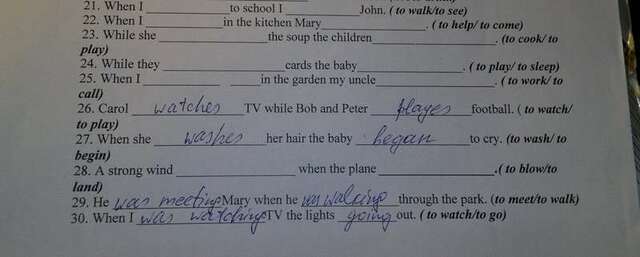 21. When I ____________ to school I ____________ John. ( to walk/to see)
22. When I ____________ in the kitchen Mary ____________. ( to help/ to come)
23. While she ____________ the soup the children ____________. (to cook/ to
play)
24. While they ____________ cards the baby ____________. ( to play/ to sleep)
25. When I ____________ in the garden my uncle ____________. ( to work/ to
call)
26. Carol watches TV while Bob and Peter playes football. ( to watch/
to play)
27. When she washes her hair the baby began to cry. (to wash/ to
begin)
28. A strong wind ____________ when the plane ____________.( to blow/to
land)
29. He was meeting Mary when he was walking through the park. (to meet/to walk)
30. When I was watching TV the lights going out. ( to watch/to go)